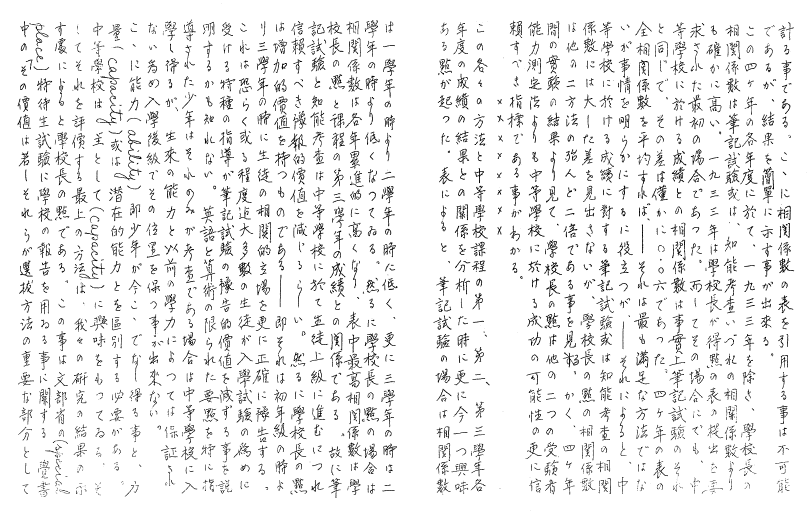 計る事である。こゝに相関係数の表を引用する事は不可能
であるが、結果を簡單に示す事が出来る。
この四ヶ年の各年度に於て、一九三三年を除き、學校長の
相関係数は筆記試験或は、知能考査いづれの相関係数より
も確かに高い。一九三三年は學校長が得點の表の提出を要
求された最初の場合であつた。而してその場合にでも、中
等學校に於ける成績との相関係数は事實上筆記試験のそれ
と同じで、その差は僅かに〇.〇六であつた。四ヶ年の表の
全相関係数を平均すれば――それは最も満足な方法ではな
いが事情を明らかにするに役立つが、――それによると、中
等學校に於ける成績に対する筆記試験或は知能考査の相関
係数には大した差を見出さないが、學校長の點の相関係数
は他の二方法の殆んど二倍である事を見る。かく、四ヶ年
間の實験の結果より見て、學校長の點は他の二つの受験者
能力測定法よりも中等學校に於ける成功の可能性の更に信
頼すべき指標である事がわかる。
××××××××
この各々の方法と中等學校課程の第一、第二、第三學年各
年度の成績の結果との關係を分析した時に更に今一つ興味
ある點が起つた。表によると、筆記試験の場合は相関係数
は一學年の時より二學年の時に低く、更に三學年の時は二
學年の時より低くなつてゐる。然るに學校長の點の場合は
相関係数は各年累進的に高くなり、表中最高相関係数は學
校長の點と課程の第三學年の成績との関係である。故に筆
記試験と知能考査は中等學校に於て生徒上級に進むにつれ
信頼すべき豫報的價値を減じるらしい。然るに學校長の點
は増加的價値を持つものである――即それは初年級の時よ
り三學年の時に生徒の相関的立場を更に正確に豫告する。
これは恐らく或る程度迄大多數の生徒が入學試験の為めに
受ける特種の指導が筆記試験の豫告的價値を減ずる事を説
明するかも知れない。英語と算術の限られた要點を特に指
導された少年はそれのみが考査である場合は中等學校に入
學し得るが、生来の能力と以前の學力によつては保証され
ない為め入學後級でその位置を保つ事が出来ない。
こゝに能力(ability)即少年が今こゝでなし得る事と、力
量(capacity)或は潜在的能力とを區別する必要がある。
中等學校は主として(capacity)に興味をもつてゐる、そ
してそれを評價する最上の方法は、我々の研究の結果の示
す處によると學校長の點である。この事は文部省の(special
place)特待生試験に學校の報告を用ゐる事に關する覺書
中の「その價値は若しそれらが選抜方法の重要な部分として